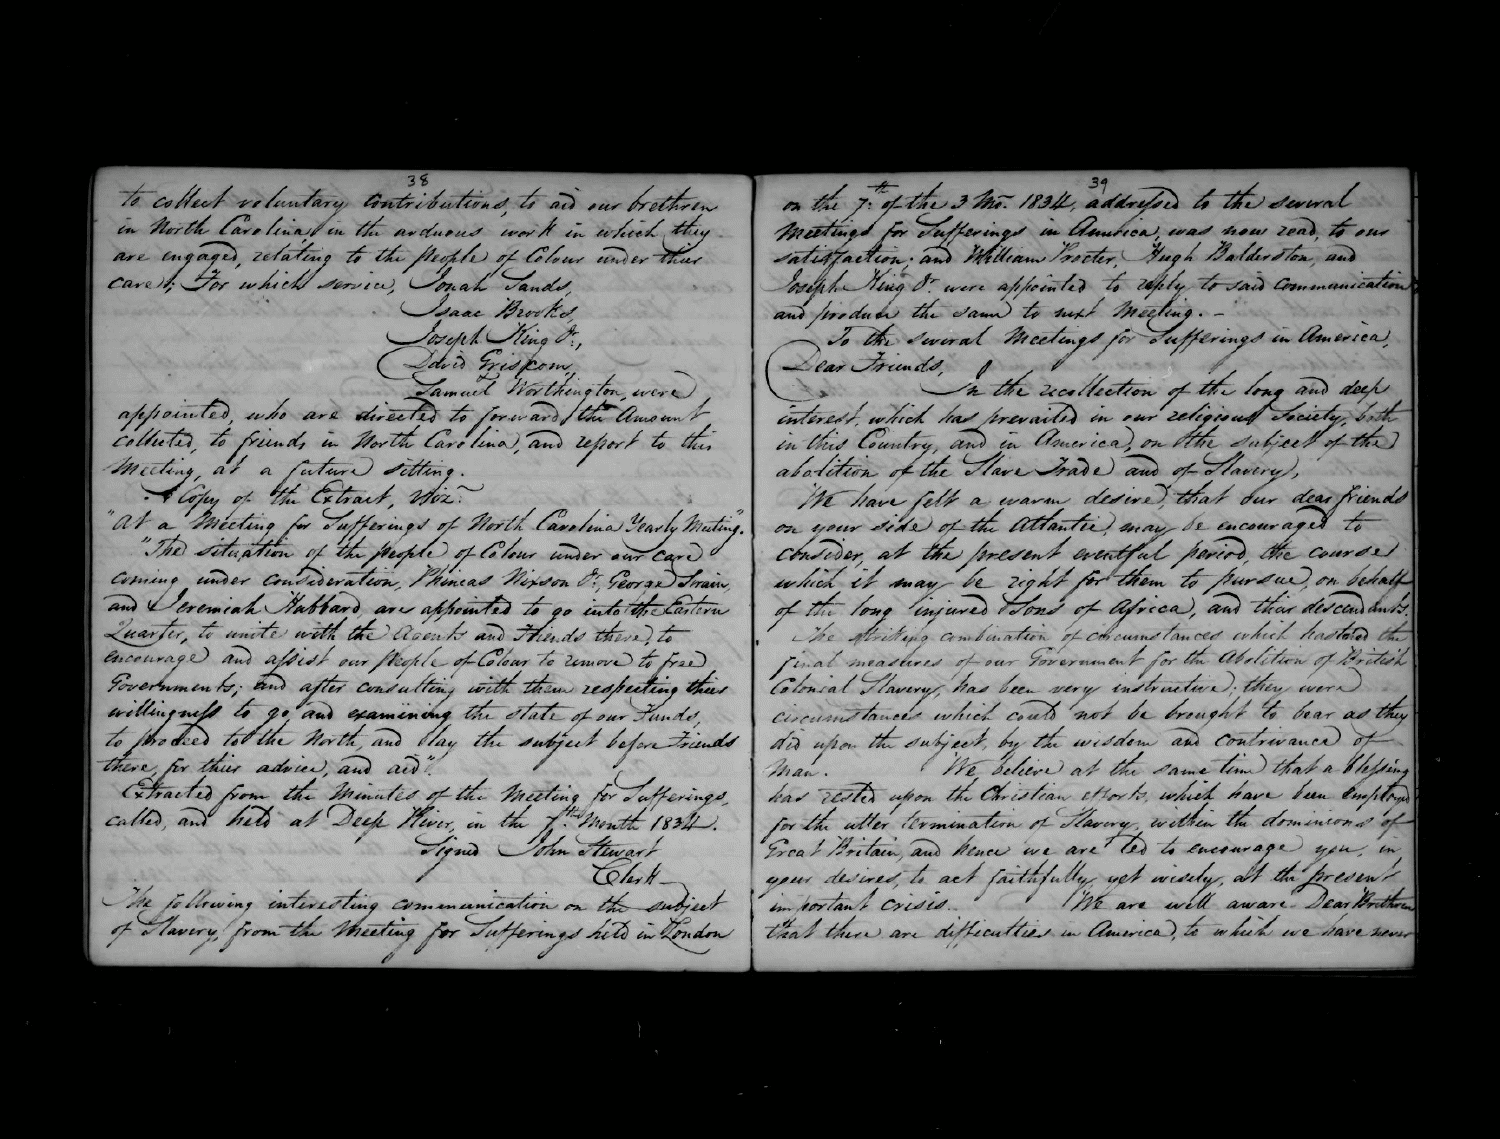 38
to collect voluntary contributions, to aid our brethren
in North Carolina, in the arduous work in which they
are engaged, relating to the People of Colour under their
care; For which service, Jonah Sands,
Isaac Brooks,
Joseph King Jr.,
David Griscom,
Samuel Worthington, were
appointed, who are directed to forward the Amount
collected, to friends in North Carolina, and report to this
Meeting, at a future sitting.
A Copy of the Extract, Viz.
"At a Meeting for Sufferings of North Carolina Yearly Meeting".
"The situation of the people of Colour under our care
coming under consideration, Phineas Nixson Jr., George Swain,
and Jeremiah Hubbard are appointed to go into the Eastern
Quarter, to unite with the Agents and Friends there, to
encourage and assist our People of Colour to remove to free
Governments; and after consulting with them respecting their
willingness to go, and examining the state of our Funds,
to proceed to the North, and lay the subject before Friends
there, for their advice, and aid".
Extracted from the Minutes of the Meeting for Sufferings,
called, and held at Deep River, in the 7th. Month 1834.
Signed John Stewart
Clerk
The following interesting communication on the subject
of Slavery, from the Meeting for Sufferings held in London
39
on the 7th. of the 3 Mo. 1834, addressed to the several
Meetings for Sufferings in America, was now read, to our
satisfaction; and William Procter, Hugh Balderston, and
Joseph King Jr. were appointed to reply to said communication
and produce the same to next Meeting. -
To the several Meetings for Sufferings in America,
Dear Friends,
In the recollection of the long and deep
interest, which has prevailed in our religious Society, both
in this Country, and in America, on the subject of the
abolition of the Slave Trade and of Slavery,
We have felt a warm desire, that our dear friends
on your side of the Atlantic, may be encouraged to
consider, at the present eventful period, the course
which it may be right for them to pursue, on behalf
of the long injured Sons of Africa, and their descendants.
The striking combination of circumstances which hastened the
final measures of our Government for the Abolition of British
Colonial Slavery, has been very instructive; they were
circumstances which could not be brought to bear as they
did upon the subject, by the wisdom and contrivance of
Man. We believe at the same time that a blessing
has rested upon the Christian efforts, which have been employed
for the utter termination of Slavery, within the dominions of
Great Britain, and hence we are led to encourage you, in
your desires, to act faithfully, yet wisely, at the present
important crisis. We are well aware Dear Brethren
that there are difficulties in America, to which we have never